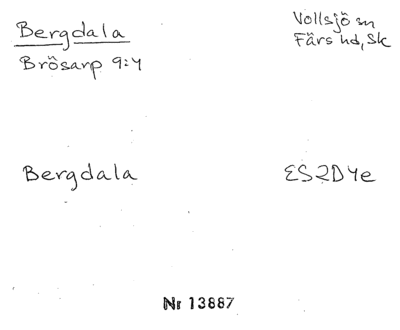 Bergdala
Brösarp 9:4
Vollsjö sn
Färs hd, Sk
Bergdala
ES2D4e
Nr 13887